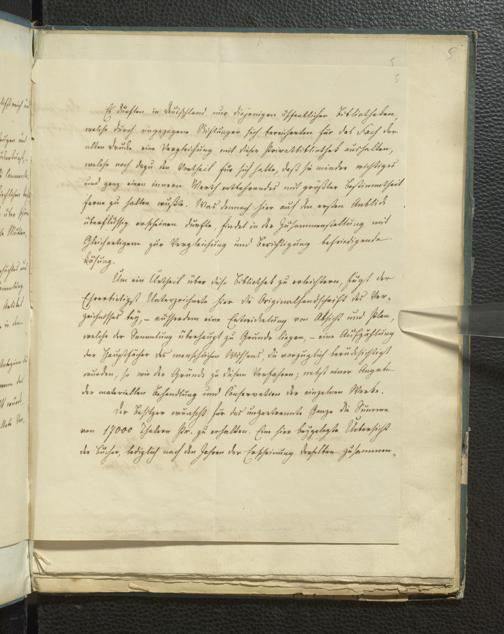 5
5
Es dürften in Deutschland nur diejenigen öffentlichen Bibliotheken,
welche durch eingezogene Stiftungen sich bereicherten für das Fach der
alten Drucke eine Vergleichung mit dieser Privatbibliothek aushalten,
welche noch dazu den Vortheil für sich hatte, daß sie minder wichtiges
und ganz eines innern Werth entbehrendes mit größter Bestimmtheit
ferne zu halten wußte. Was demnach hier auf den ersten Anblick
überflüssig erscheinen dürfte, findet in der Zusammenstellung mit
Gleichartigem zur Vergleichung und Berichtigung befriedigende
Lösung.
Um ein Urtheil über diese Bibliothek zu erleichtern, fügt der
Ehrerbietigst Unterzeichnete hier die Originalhandschrift des Ver-
zeichnisses bey, – ausserdem eine Entwickelung von Absicht und Plan,
welche der Sammlung überhaupt zu Grunde liegen, – eine Aufzählung
der Hauptfächer des menschlichen Wissens, die vorzüglich berücksichtigt
wurden, so wie der Gründe zu diesem Verfahren; nebst einer Angabe
der materiellen Behandlung und Conservation der einzelnen Werke.
Der Besitzer wünscht für das ungetrennte Ganze die Summe
von 17000 Thalern Pr. zu erhalten. Eine hier beygelegte Uebersicht
der Bücher, lediglich nach den Jahren der Erscheinung derselben zusammen-